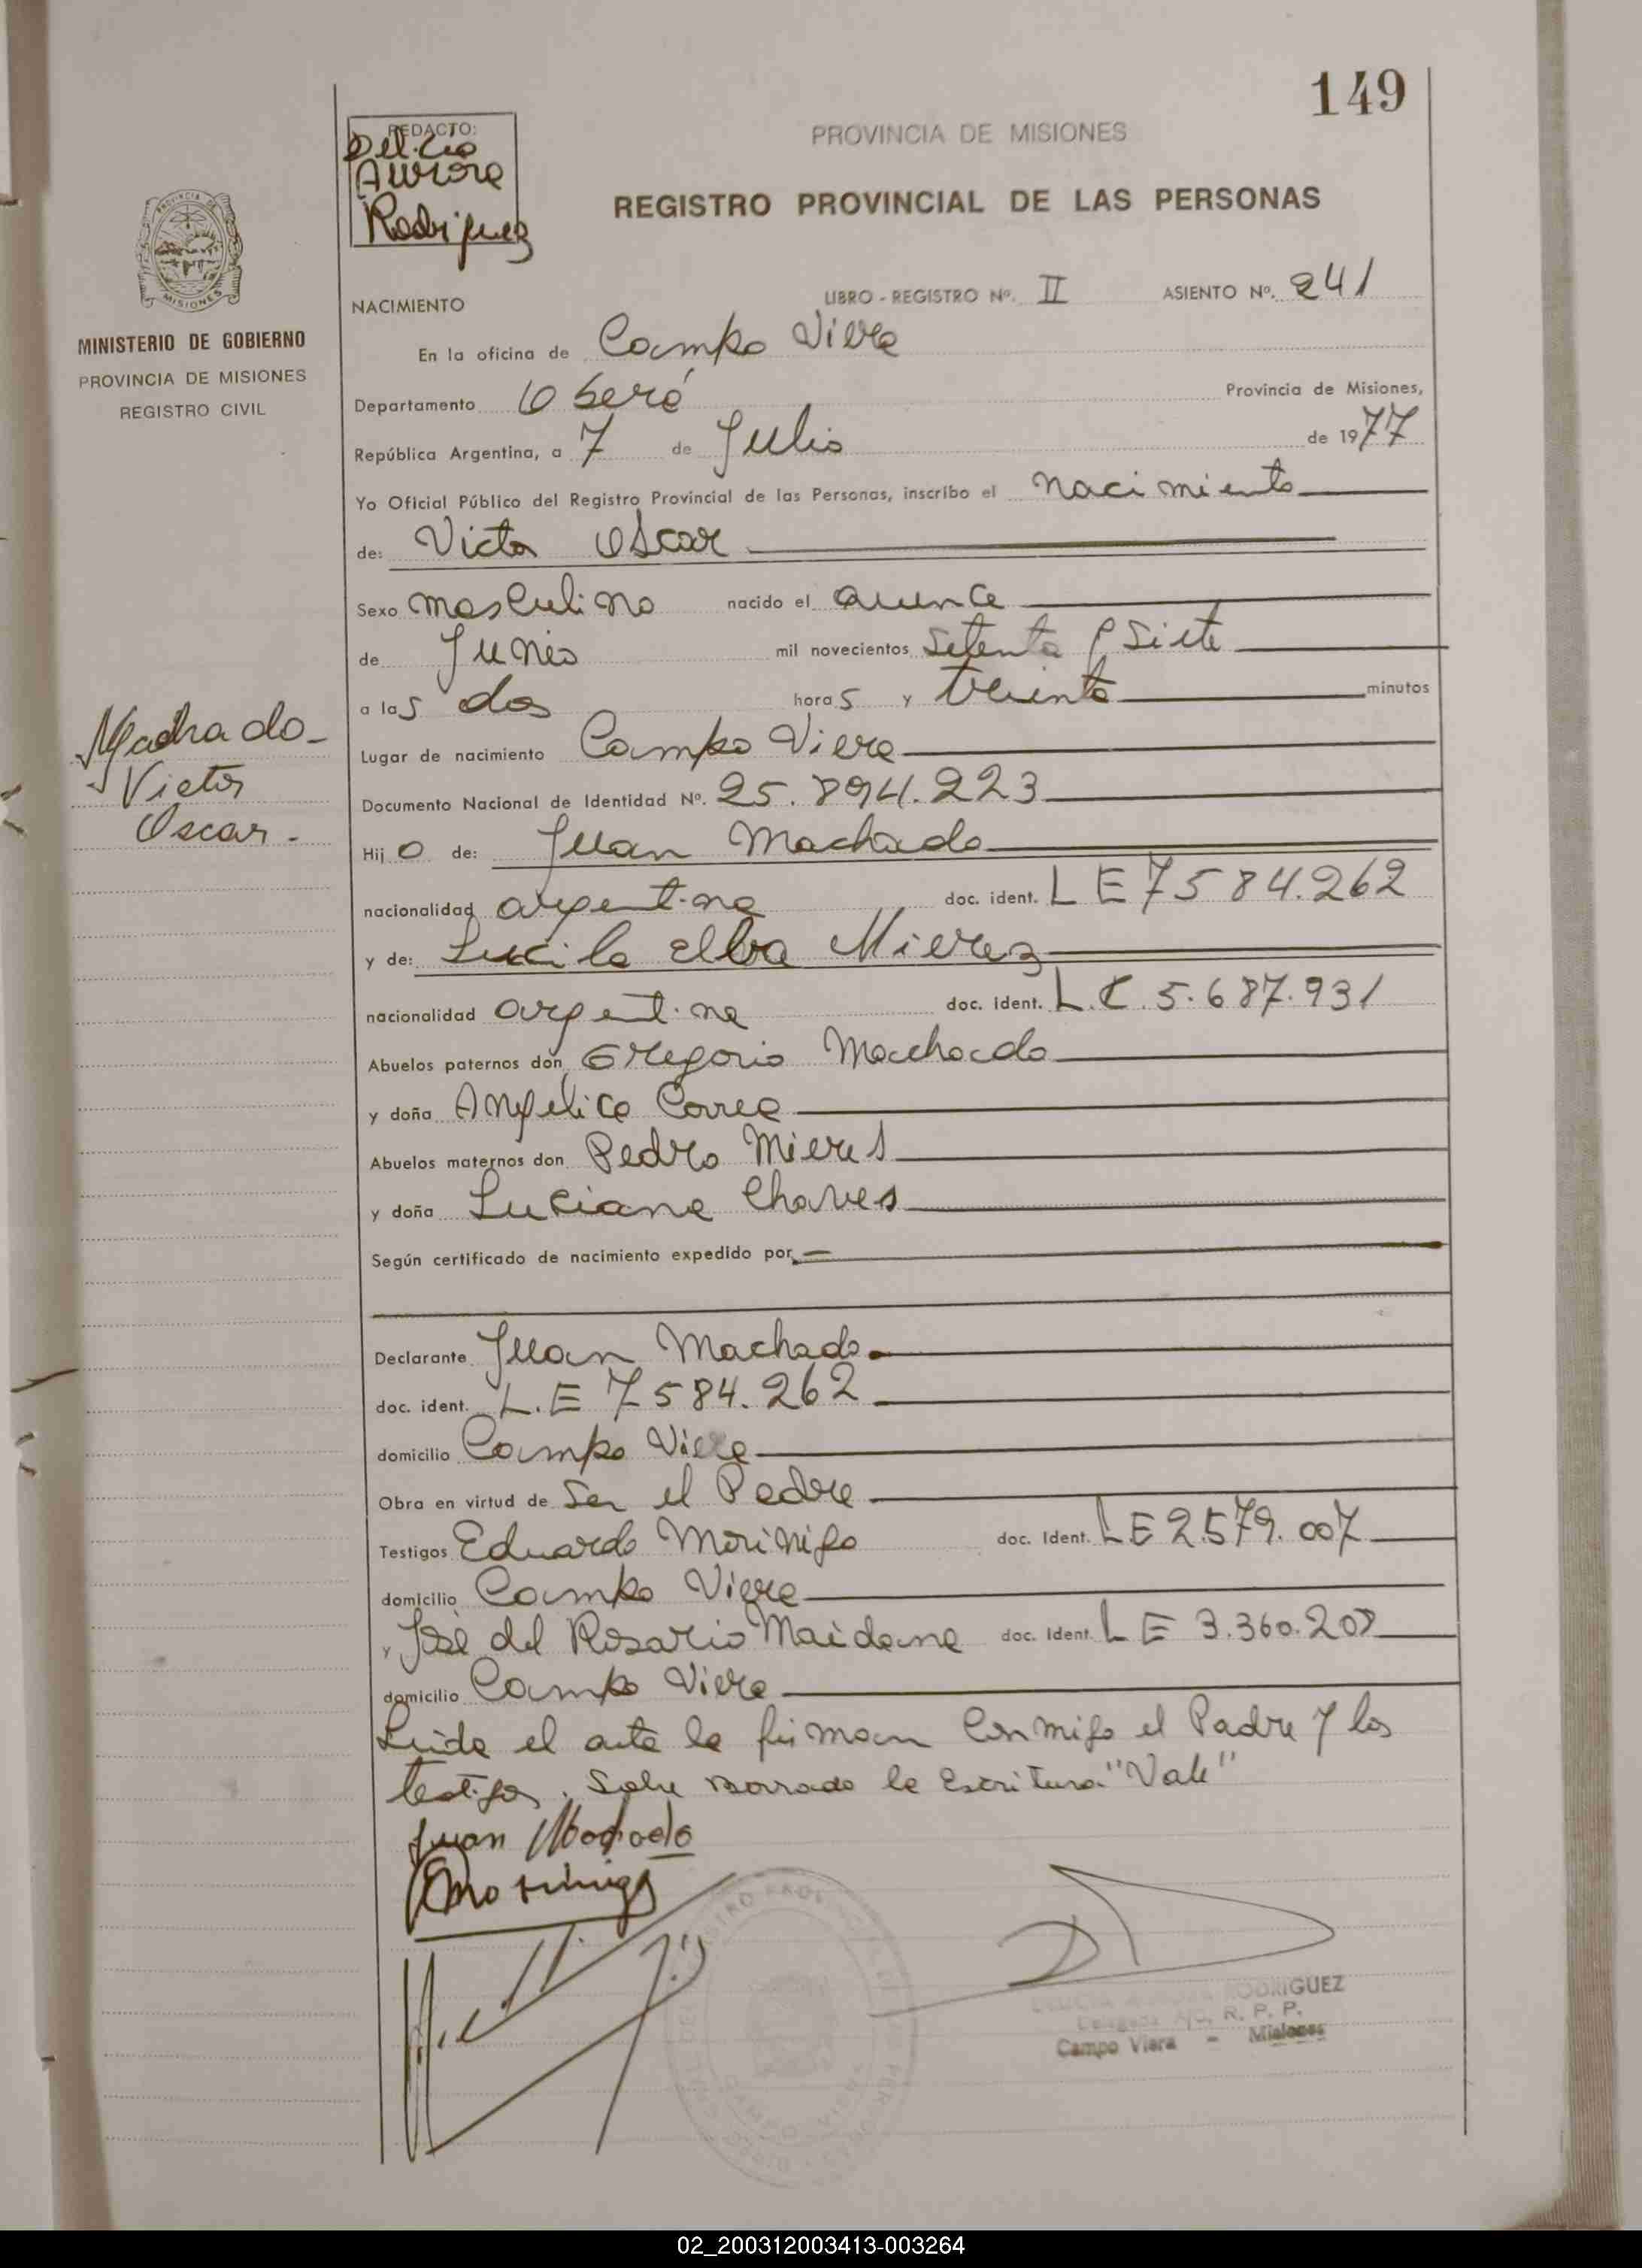 149
REDACTO:
Delicia
Aurora
Rodriguez
PROVINCIA DE MISIONES
REGISTRO PROVINCIAL DE LAS PERSONAS
MISIONES
MINISTERIO DE GOBIERNO
PROVINCIA DE MISIONES
REGISTRO CIVIL
NACIMIENTO LIBRO - REGISTRO Nº. II ASIENTO Nº. 241
En la oficina de Campo Viera
Departamento Oberá Provincia de Misiones,
República Argentina, a 7 de Julio de 1977
Yo Oficial Público del Registro Provincial de las Personas, inscribo el nacimiento
de: Victor Oscar
Sexo masculino nacido el quince
de Junio mil novecientos setenta y siete
a las dos horas y treinta minutos
Lugar de nacimiento Campo Viera
Machado
Victor
Oscar.
Documento Nacional de Identidad Nº. 25.894.223
Hijo de: Juan Machado
nacionalidad argentina doc. ident. L E 7584.262
y de: Lucila Elba Mierez
nacionalidad argentina doc. ident. L.C. 5.687.931
Abuelos paternos don Gregorio Machado
y doña Angélica Correa
Abuelos maternos don Pedro Mieres
y doña Luciana Chaves
Según certificado de nacimiento expedido por
Declarante Juan Machado
doc. ident. L.E 7584.262
domicilio Campo Viera
Obra en virtud de ser el Padre
Testigos Eduardo Morinigo doc. Ident. LE 2.579.007
domicilio Campo Viera
y José del Rosario Maidana doc. Ident. L E 3.360.208
domicilio Campo Viera
Leida el acta la firman conmigo el Padre y los
testigos. Sobre borrado la escritura "Vale"
Juan Machado
Morinigo
RODRIGUEZ
Delegada R. P. P.
Campo Viera - Misiones
02_200312003413-003264